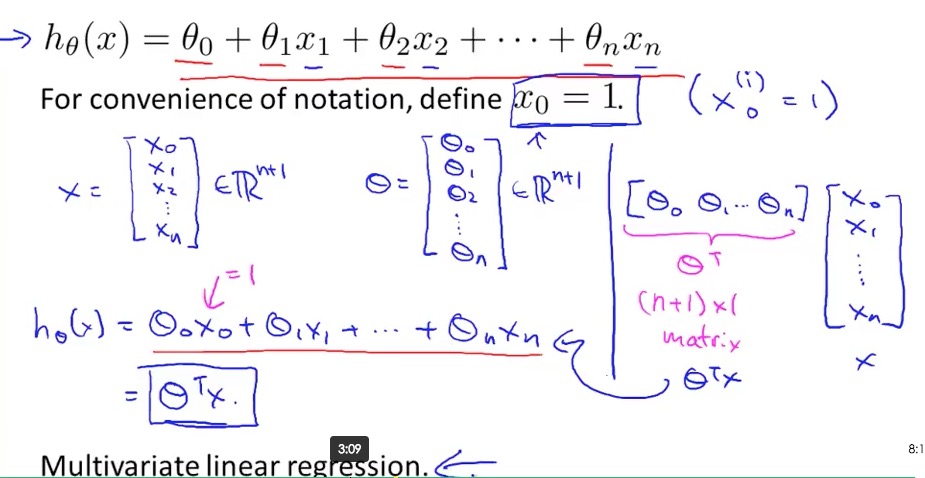 → hθ(x) = θ₀ + θ₁x₁ + θ₂x₂ + ⋯ + θₙxₙ
For convenience of notation, define x₀ = 1. (x₀⁽ⁱ⁾ = 1)
x = [x₀ x₁ x₂ ⋮ xₙ] ∈ ℝⁿ⁺¹ θ = [θ₀ θ₁ θ₂ ⋮ θₙ] ∈ ℝⁿ⁺¹
[θ₀ θ₁ ⋯ θₙ] [x₀ x₁ ⋮ xₙ]
θᵀ
(n+1) x 1
matrix
x
θᵀx
= 1
hθ(x) = θ₀x₀ + θ₁x₁ + ⋯ + θₙxₙ
= θᵀx.
3:09
8:1
Multivariate linear regression. ←